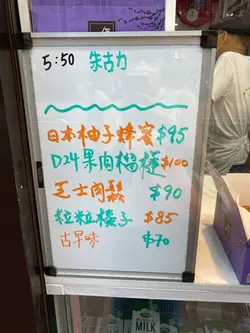 5:50 朱古力
日本柚子蜂蜜 $95
D24果肉榴槤 $100
芝士肉鬆 $90
粒粒榛子 $85
古早味 $70
MILK